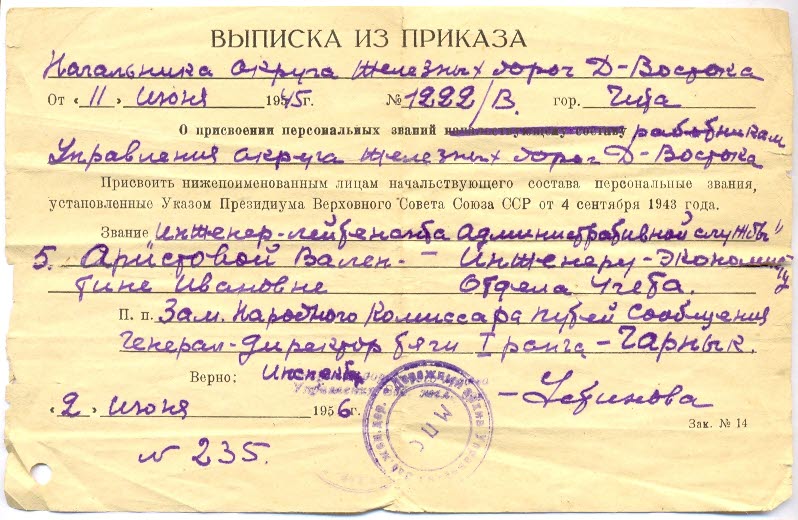 ВЫПИСКА ИЗ ПРИКАЗА
Начальника округа железных дорог Д-Востока
От «11» июня 1945г. № 1222/В. гор. Чита
О присвоении персональных званий начальствующему составу работникам
Управления округа железных дорог Д-Востока
Присвоить нижепоименованным лицам начальствующего состава персональные звания,
установленные Указом Президиума Верховного Совета Союза ССР от 4 сентября 1943 года.
Звание "инженер-лейтенанта административной службы"
5. Аристовой Вален- – Инженеру-экономисту
тине Ивановне Отдела Учета.
П. п. Зам. Народного Комиссара путей сообщения
Генерал-директор тяги I ранга – Гарнык.
Верно: Инспектор
– Устинова
«2» июня 1956г.
Зак. № 14
МПС
№ 235.